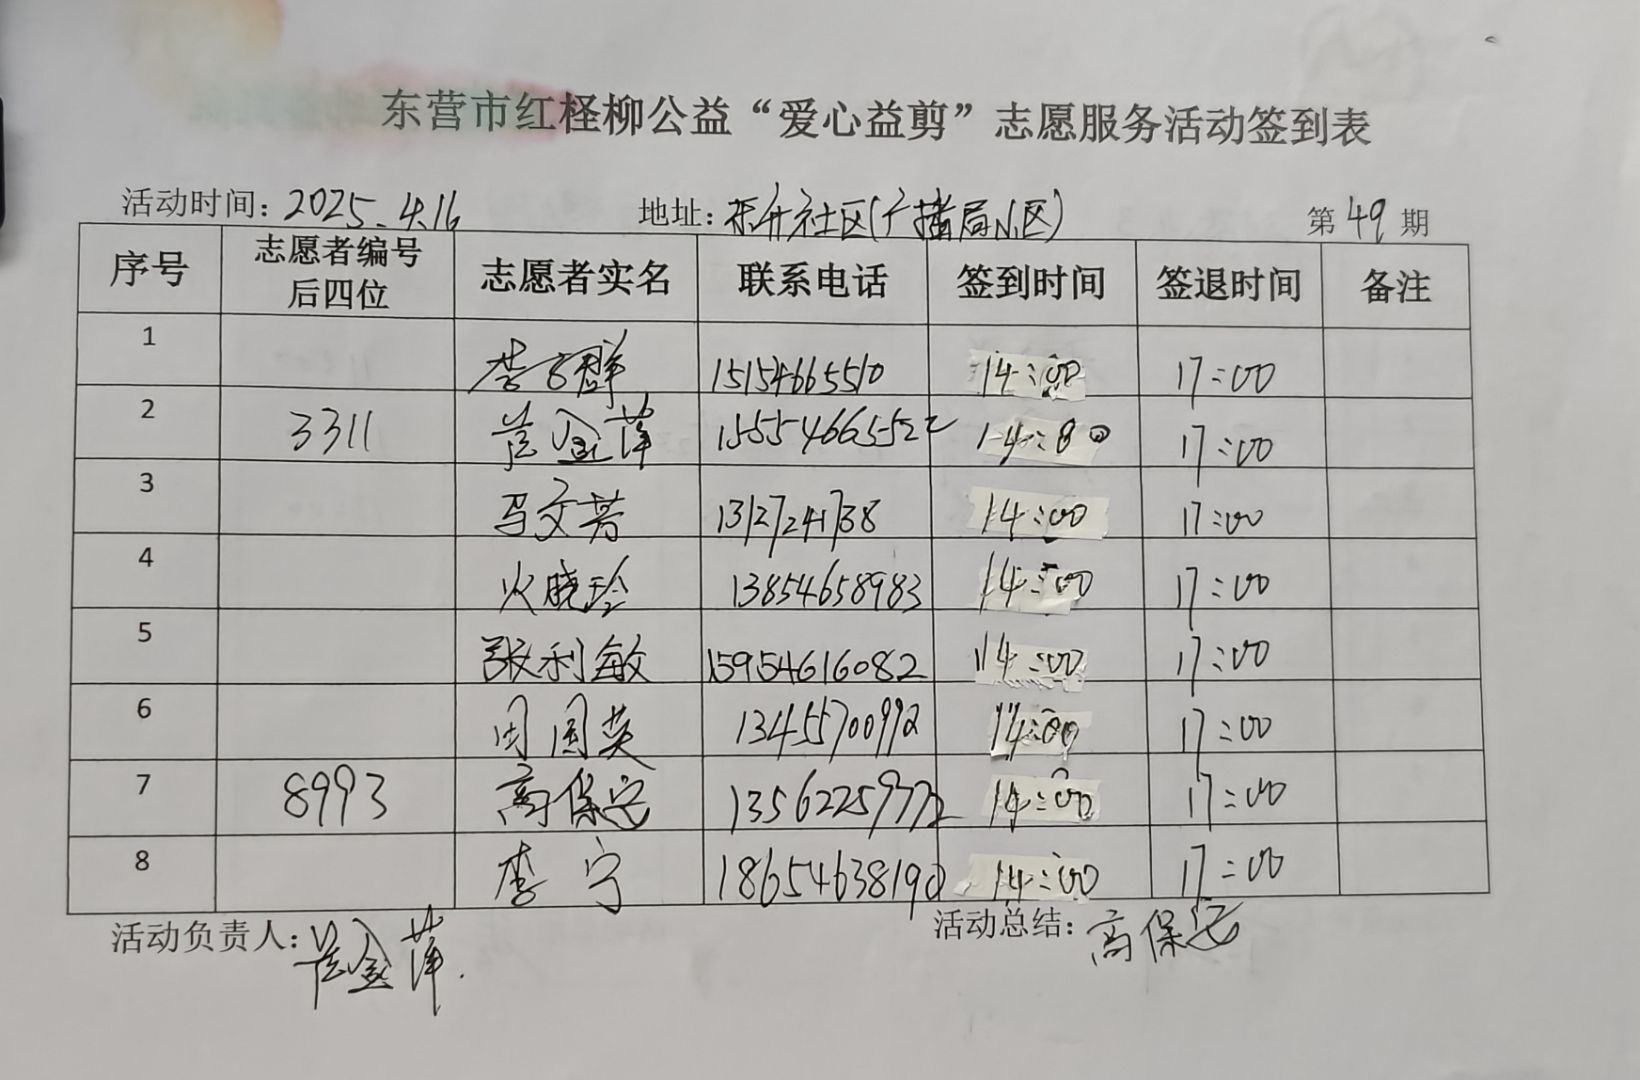 东营市红柽柳公益“爱心益剪”志愿服务活动签到表
活动时间：2025.4.16 地址：社区(广播局小区) 第49期
序号 志愿者编号后四位 志愿者实名 联系电话 签到时间 签退时间 备注
1 李群 15154665510 14:00 17:00
2 3311 金萍 15554665522 14:00 17:00
3 马文芳 13127241738 14:00 17:00
4 火晓玲 13854658983 14:00 17:00
5 张利敏 15954616082 14:00 17:00
6 周国英 13455700992 14:00 17:00
7 8993 高保安 14:00 17:00
8 李宁 18654638190 14:00 17:00
活动负责人：金萍. 活动总结：高保安